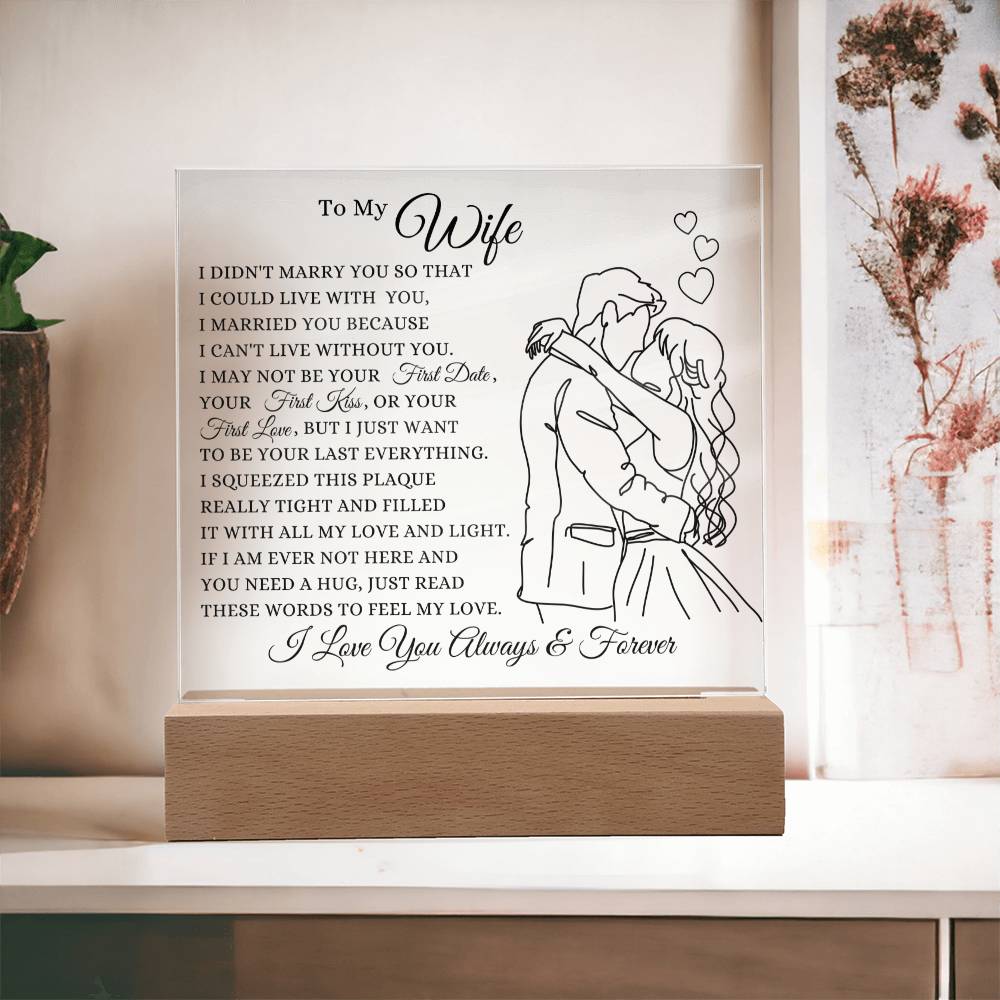 To My Wife
I DIDN'T MARRY YOU SO THAT
I COULD LIVE WITH YOU,
I MARRIED YOU BECAUSE
I CAN'T LIVE WITHOUT YOU.
I MAY NOT BE YOUR First Date,
YOUR First Kiss, OR YOUR
First Love, BUT I JUST WANT
TO BE YOUR LAST EVERYTHING.
I SQUEEZED THIS PLAQUE
REALLY TIGHT AND FILLED
IT WITH ALL MY LOVE AND LIGHT.
IF I AM EVER NOT HERE AND
YOU NEED A HUG, JUST READ
THESE WORDS TO FEEL MY LOVE.
I Love You Always & Forever